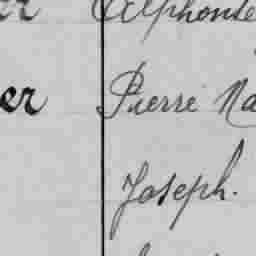 Alphonse
er Pierre Na
Joseph.